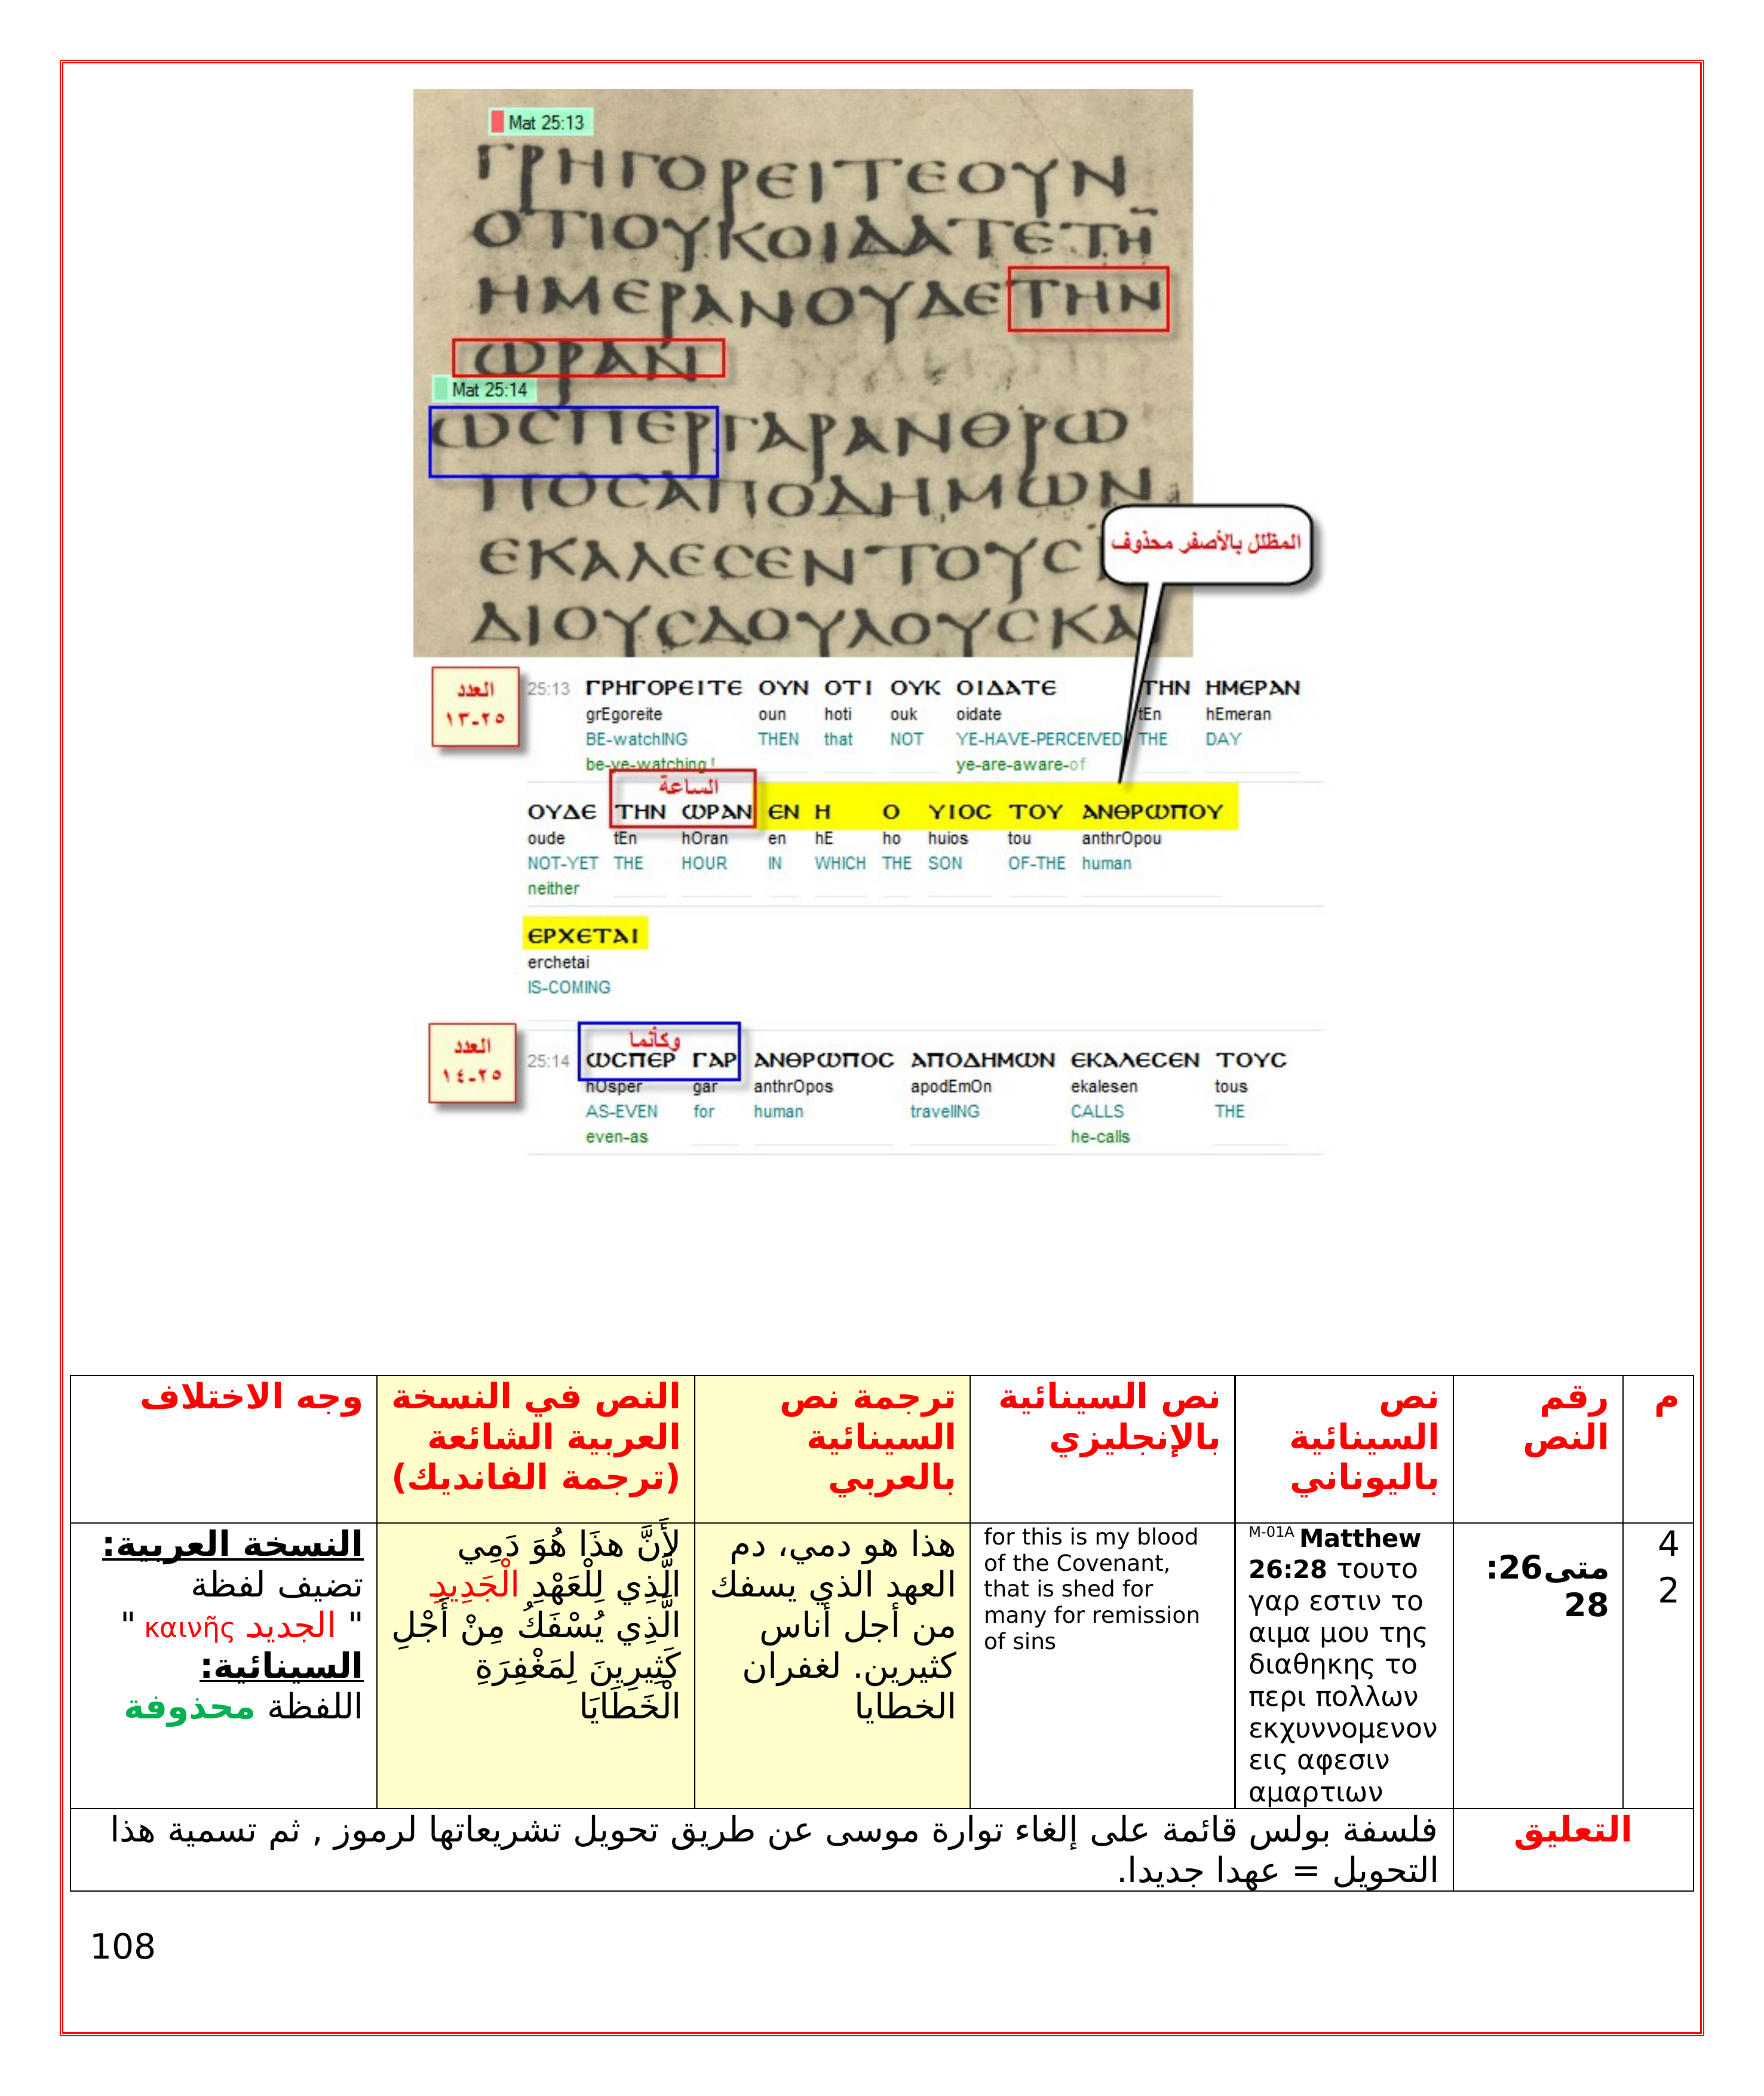 Mat 25:13
ΓΡΗΓΟΡΕΙΤΕΟΥΝ
ΟΤΙΟΥΚΟΙΔΑΤΕΤΗ̄
ΗΜΕΡΑΝΟΥΔΕΤΗΝ
ѠΡΑΝ
Mat 25:14
ѠϹΠΕΡΓΑΡΑΝΘΡѠ
ΠΟϹΑΠΟΔΗΜѠΝ
ΕΚΑΛΕϹΕΝΤΟΥϹ
ΔΙΟΥϹΔΟΥΛΟΥϹΚΑ
المظلل بالأصفر محذوف
العدد
٢٥-١٣
25:13 ΓΡΗΓΟΡΕΙΤΕ ΟΥΝ ΟΤΙ ΟΥΚ ΟΙΔΑΤΕ ΤΗΝ ΗΜΕΡΑΝ
grEgoreite oun hoti ouk oidate tEn hEmeran
BE-watchING THEN that NOT YE-HAVE-PERCEIVED THE DAY
be-ye-watching ! ye-are-aware-of
الساعة
ΟΥΔΕ ΤΗΝ ѠΡΑΝ ΕΝ Η Ο ΥΙΟϹ ΤΟΥ ΑΝΘΡѠΠΟΥ
oude tEn hOran en hE ho huios tou anthrOpou
NOT-YET THE HOUR IN WHICH THE SON OF-THE human
neither
ΕΡΧΕΤΑΙ
erchetai
IS-COMING
العدد
٢٥-١٤
وكأنما
25:14 ѠϹΠΕΡ ΓΑΡ ΑΝΘΡѠΠΟϹ ΑΠΟΔΗΜѠΝ ΕΚΑΛΕϹΕΝ ΤΟΥϹ
hOsper gar anthrOpos apodEmOn ekalesen tous
AS-EVEN for human travelING CALLS THE
even-as he-calls
م
رقم
النص
نص
السينائية
باليوناني
نص السينائية
بالإنجليزي
ترجمة نص
السينائية
بالعربي
النص في النسخة
العربية الشائعة
(ترجمة الفانديك)
وجه الاختلاف
4
2
متى26:
28
M-01A Matthew
26:28 τουτο
γαρ εστιν το
αιμα μου της
διαθηκης το
περι πολλων
εκχυννομενον
εις αφεσιν
αμαρτιων
for this is my blood
of the Covenant,
that is shed for
many for remission
of sins
هذا هو دمي، دم
العهد الذي يسفك
من أجل أناس
كثيرين. لغفران
الخطايا
لأَنَّ هذَا هُوَ دَمِي
الَّذِي لِلْعَهْدِ الْجَدِيدِ
الَّذِي يُسْفَكُ مِنْ أَجْلِ
كَثِيرِينَ لِمَغْفِرَةِ
الْخَطَايَا
النسخة العربية:
تضيف لفظة
" الجديد καινῆς "
السينائية:
اللفظة محذوفة
التعليق
فلسفة بولس قائمة على إلغاء توارة موسى عن طريق تحويل تشريعاتها لرموز , ثم تسمية هذا
التحويل = عهدا جديدا.
108